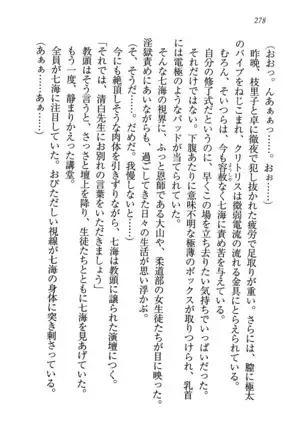 278
(おおっ。んあぁぁっ……。おぉ……)
昨晩、枝里子と卓に徹夜で犯し抜かれた疲労で足取りが重い。さらには、膣に極太
のバイブをねじこまれ、クリトリスは微弱電流の流れる金具にとらえられている。
むろん、そいつらは、今も容赦なく七海に責め苦を与えている。
自分の修了式だというのに、早くこの場を立ち去りたい気持ちでいっぱいだった。
それだけではない。下腹あたりに意味不明な極薄のボックスが取りつけられ、乳首
には電極のようなパッドが当てられていた。
そんな七海の視界に、ふっと恩師である大山や、柔道部の女生徒たちが目に映った。
淫獄責めにあいながらも、過ごしてきた日々の生活が思い浮かぶ。
(そ、そうだ……。だめ、我慢しないと……)
今にも絶頂しそうな肉体を引きずりながら、七海は教頭に譲られた演壇につく。
「それでは、清白先生にお別れの言葉をいただきましょう」
教頭はそう言うと、さっさと壇上を降り、生徒たちとともに七海を見あげていた。
もう一度、静まりかえった講堂。
全員が七海に注目していた。おびただしい視線が七海の身体に突き刺さっている。
(あぁぁ……あぁぁ……)